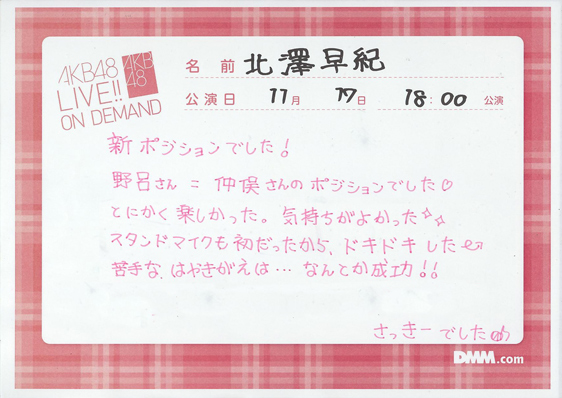 AKB48
LIVE!!
ON DEMAND
AKB
48
名 前 北澤早紀
公演日 11月 19日 18:00 公演
新ポジションでした!
野呂さん = 仲俣さんのポジションでした♡
とにかく楽しかった。気持ちがよかった✧✧
スタンドマイクも初だったから、ドキドキした
苦手な、はやきがえは…なんとか成功!!
さっきーでした
DMM.com